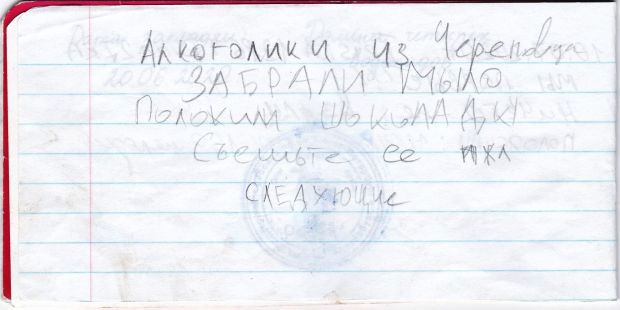 Алкоголики из Череповца
ЗАБРАЛИ МЫЛО
Положили ШОКыЛАДКУ
Съешьте её
СЛЕДУЮЩИе